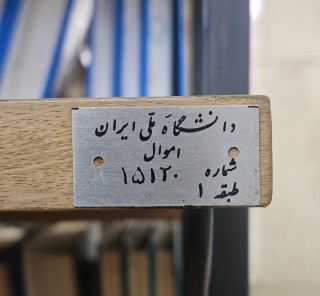 دانشگاه ملّی ایران
اموال
شماره ۱۵۱۲۰
طبقه ۱